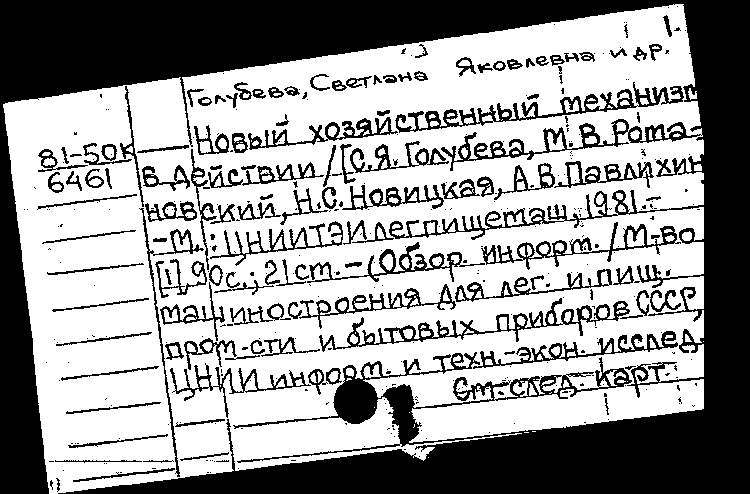 1.
Голубева, Светлана Яковлевна и др.
81-50к
6461
Новый хозяйственный механизм
в действии / [С.Я. Голубева, М.В. Рота-
новский, Н.С. Новицкая, А.В. Павлихин
- М. : ЦНИИТЭИлегпищемаш, 1981. -
[1], 90 с.; 21 см. - (Обзор. информ. / М-во
машиностроения для лег. и пищ.
пром-сти и бытовых приборов СССР,
ЦНИИ информ. и техн.-экон. исслед.
См. след. карт.